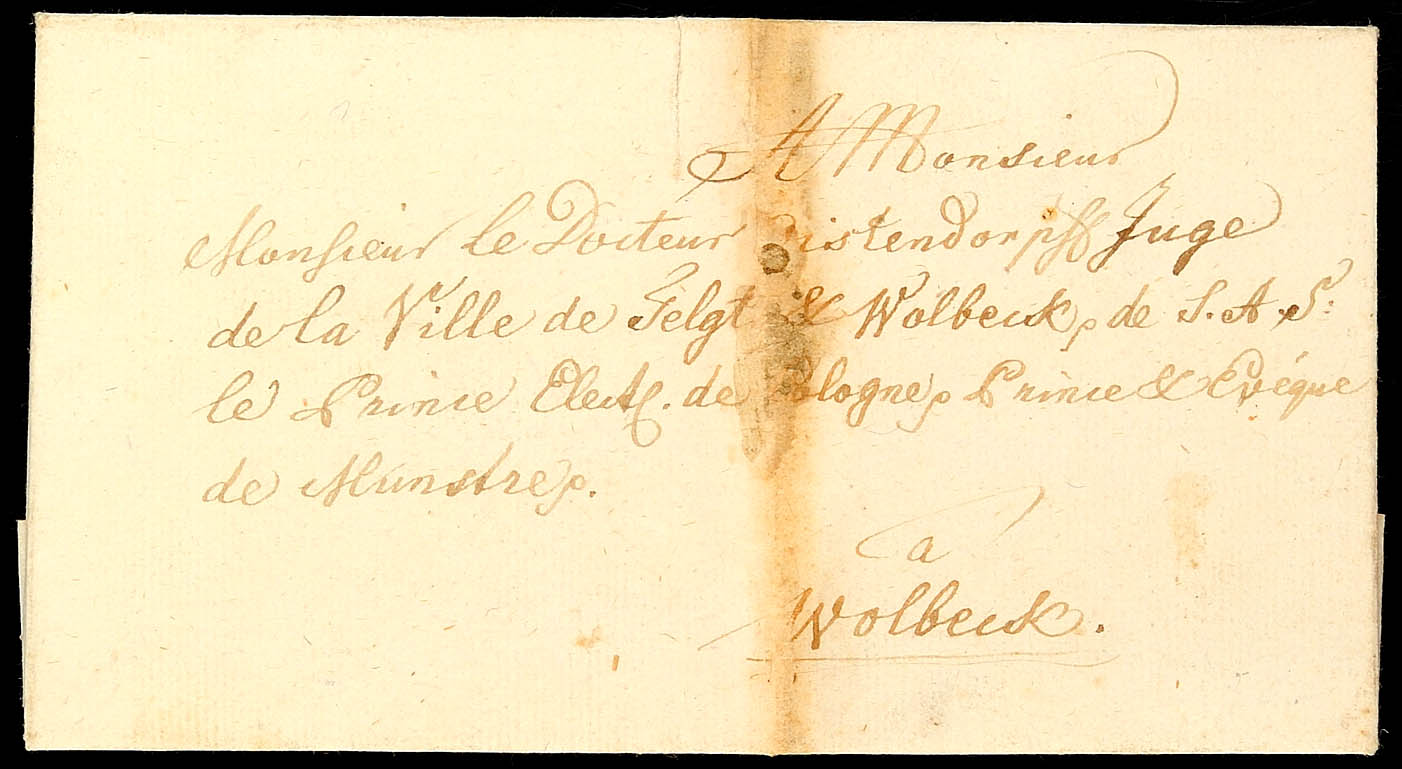 A Monsieur
Monsieur le Docteur Juge
de la Ville de Telgt & Wolbeck, de S. A. S.
le Prince Elect. de Cologne, Prince & Evéque
de Munstre,.
a
Wolbeck.